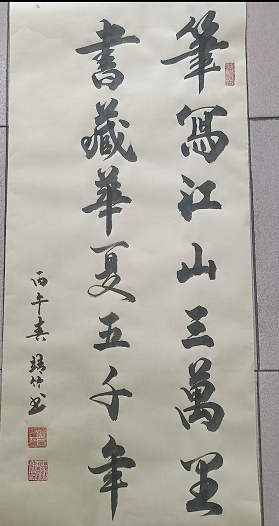 筆寫江山三萬里
書藏華夏五千年
丙午春 靖竹書